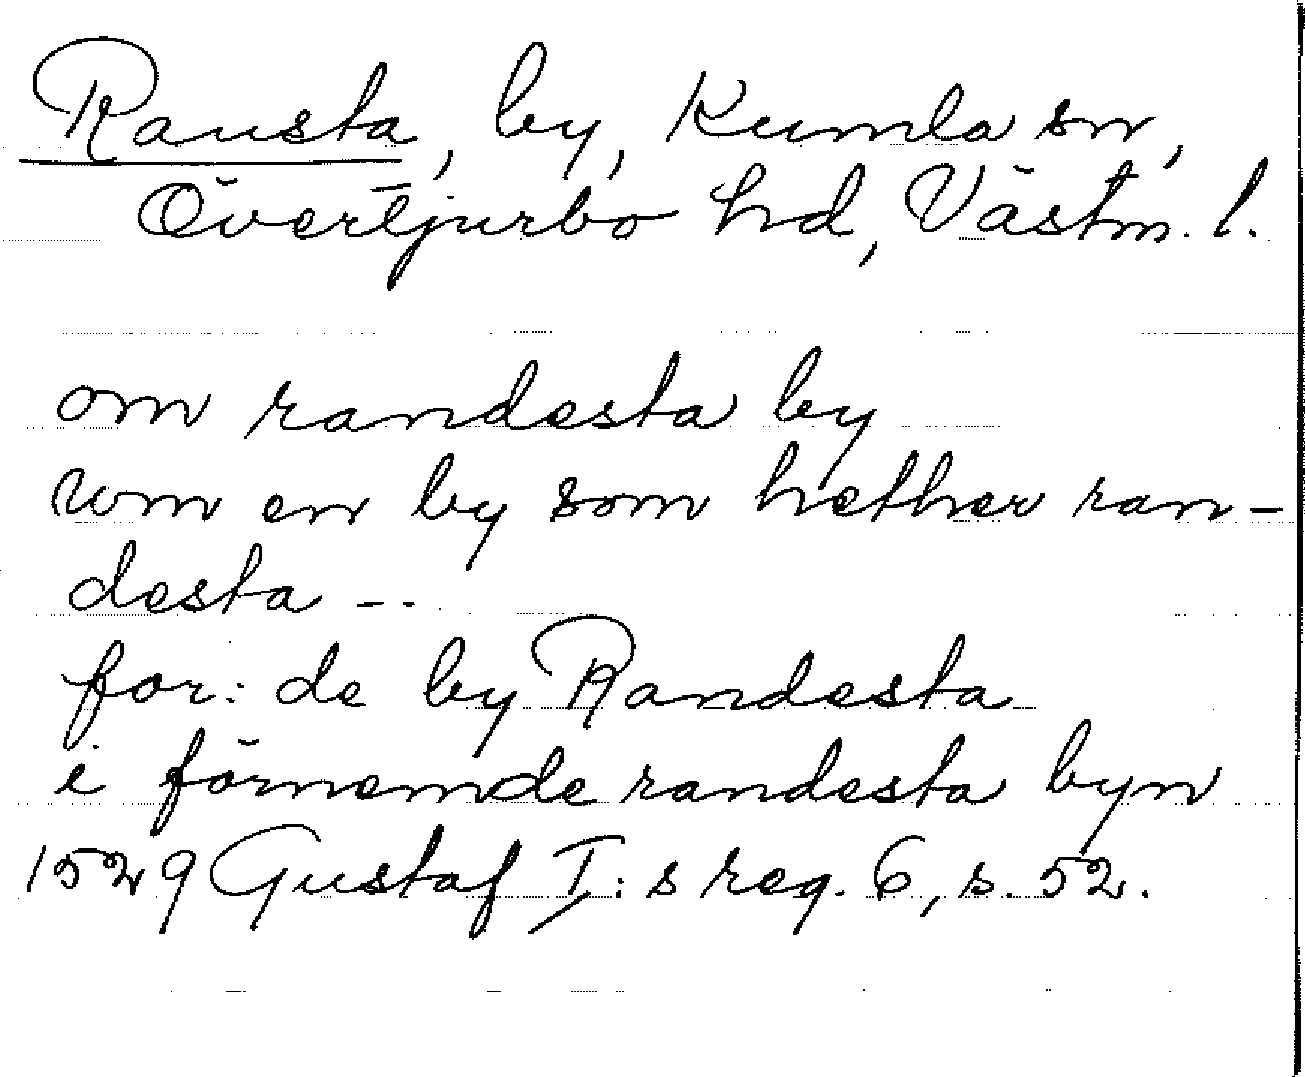 Rausta, by, Kumla sn,
Övertjurbo hd, Västm. l.
om randesta by
wm en by som hether ran-
desta --
for: de by Randesta
i förnemde randesta byn
1529 Gustaf I:s reg. 6, s. 52.